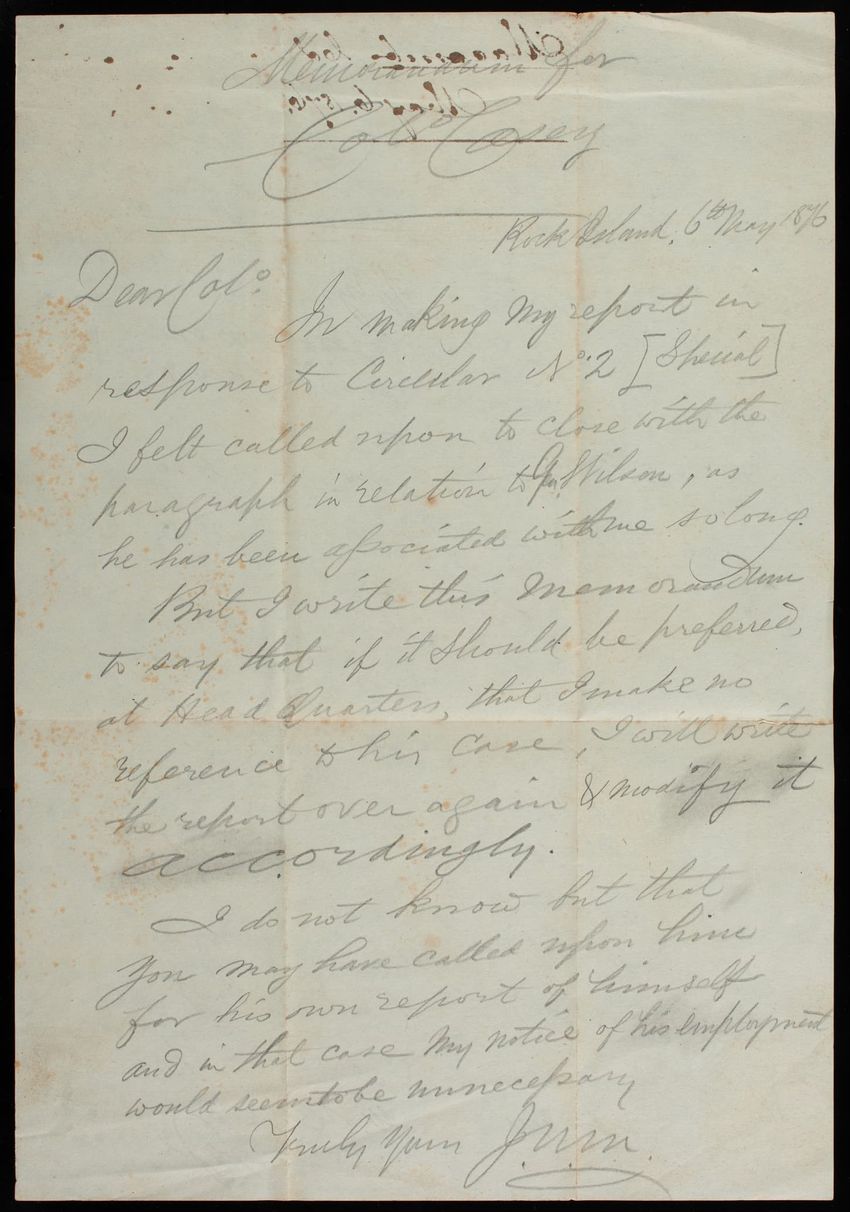 Memorandum for
Colo Casey
Rock Island, 6th May 1876
Dear Colo.
In making my report in
response to Circular No. 2 [Special]
I felt called upon to close with the
paragraph in relation to Wilson, as
he has been associated with me so long.
But I write this memorandum
to say that if it should be preferred,
at Head Quarters, that I make no
reference to his case, I will write
the report over again & modify it
accordingly.
I do not know but that
you may have called upon him
for his own report of himself
and in that case my notice of his employment
would seem to be unnecessary
Truly Yours